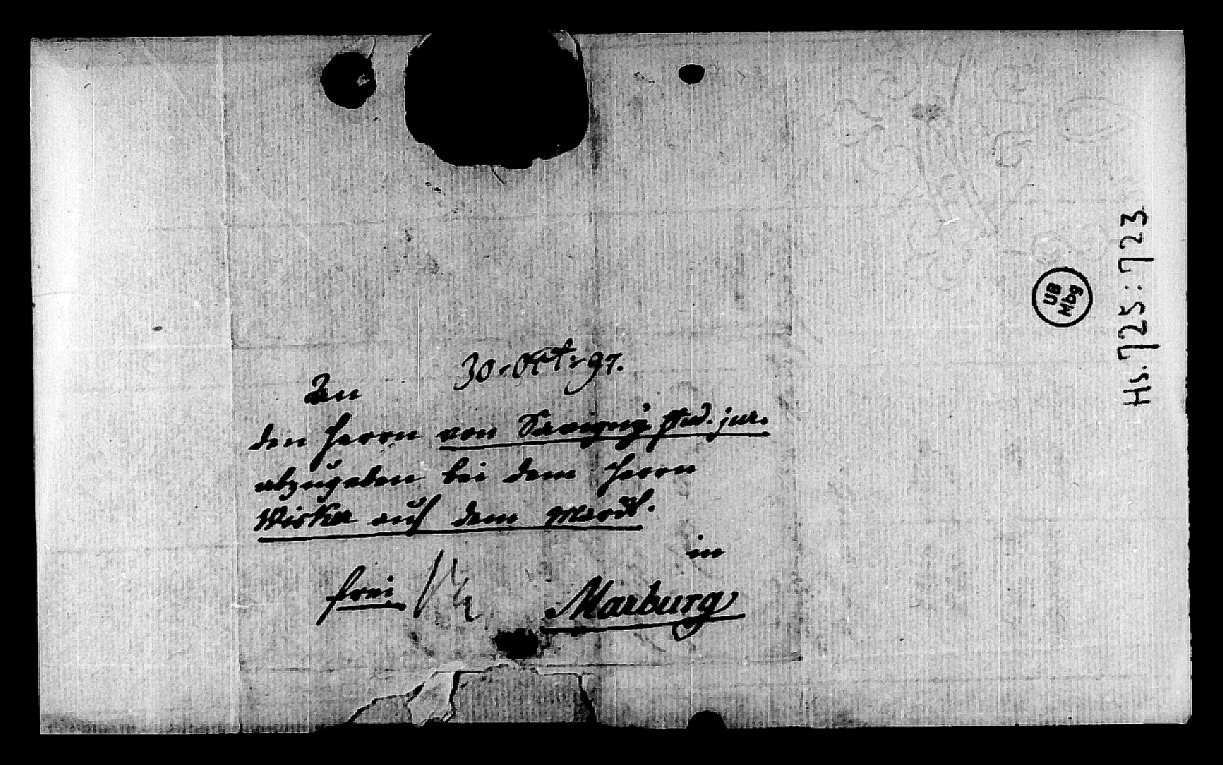 30. Okt. 97.
An
den Herrn von Savigny, stud. jur.
abzugeben bei dem Herrn
auf dem Markt.
in
frei
Marburg
UB
Mbg
Hs. 725:723